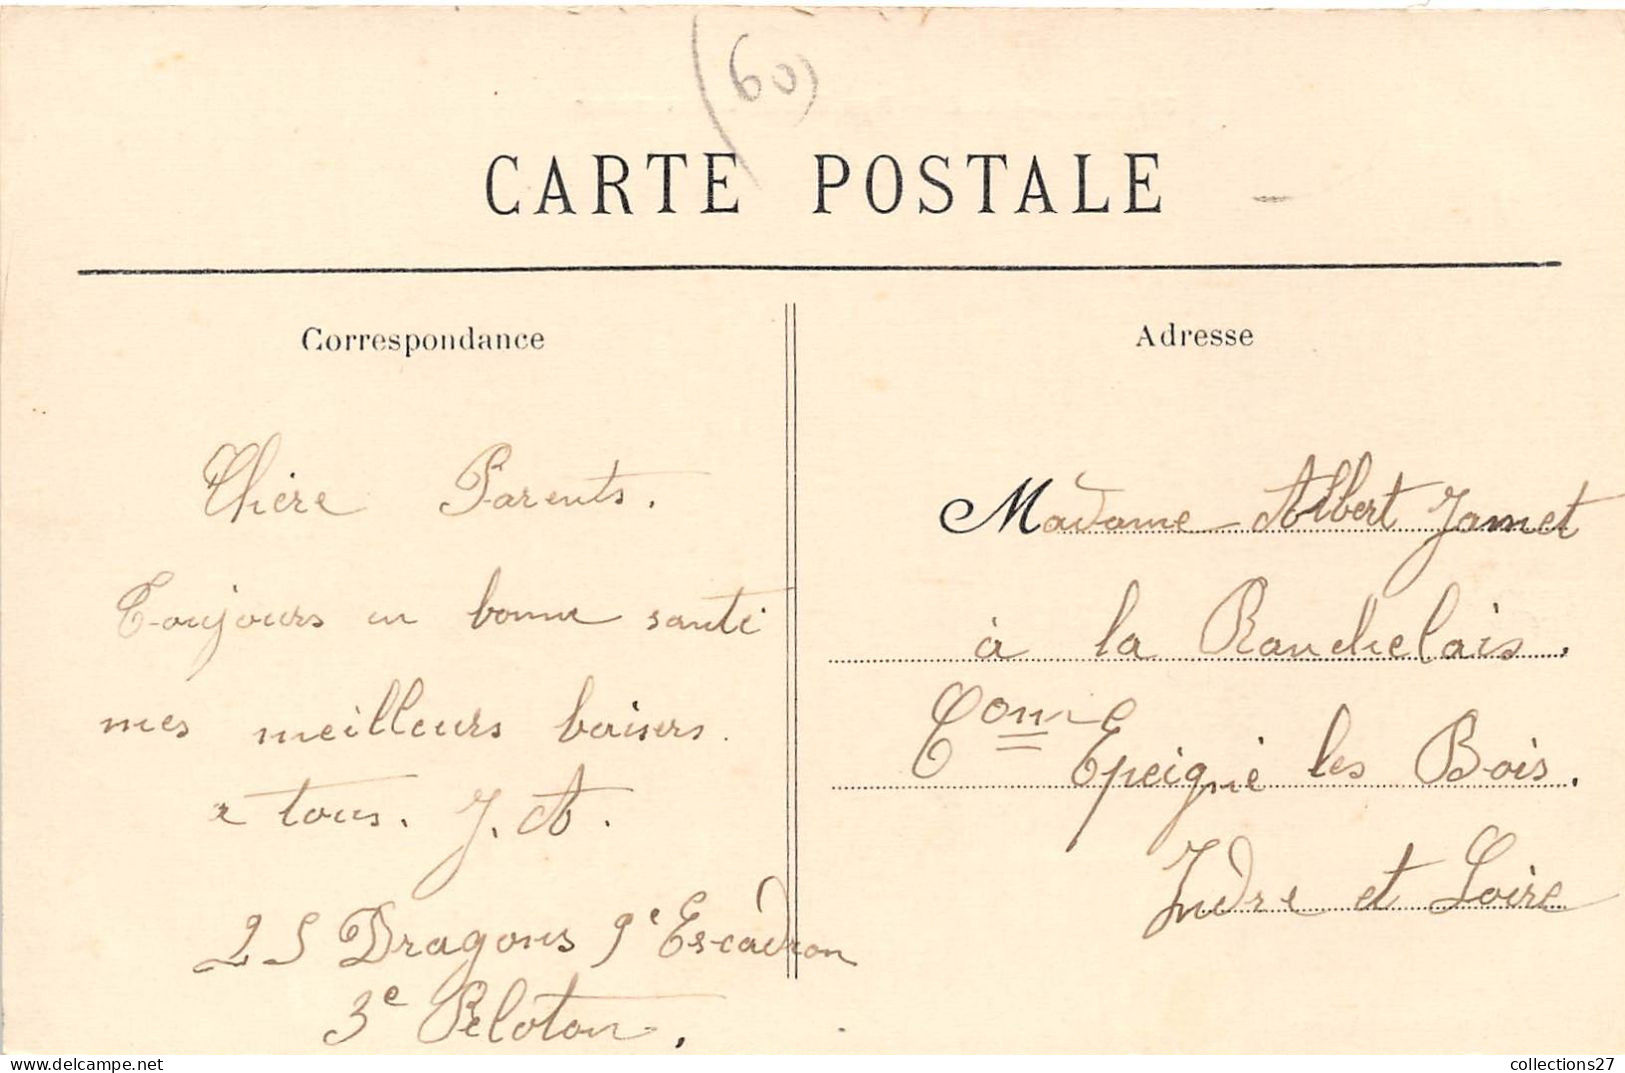 (60)
CARTE POSTALE
Correspondance
Chère Parents.
Toujours en bonne santé
mes meilleurs baisers.
a tous. J. A.
25 Dragons 9e Escadron
3e Peloton.
Adresse
Madame Albert Jamet
à la Rauchelais.
Comne
Epeigné les Bois.
Indre et Loire
collections27